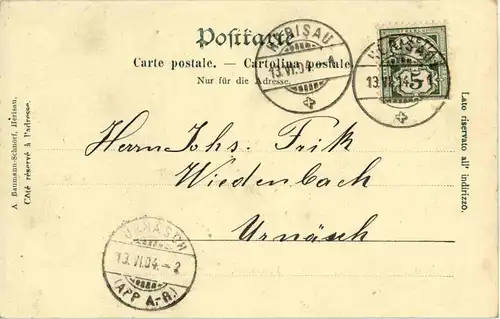 Postkarte
Carte postale. — Cartolina postale.
Nur für die Adresse.
HERISAU
13.VI.04.
HERISAU
13.VI.04.
5
A. Baumann-Schnorf, Herisau.
Côté réservé à l'adresse.
Lato riservato all' indirizzo.
Herrn Johs. Frik
Wiedenbach
Urnäsch
URNÄSCH
13.VI.04.–2
(APP. A.-R.)